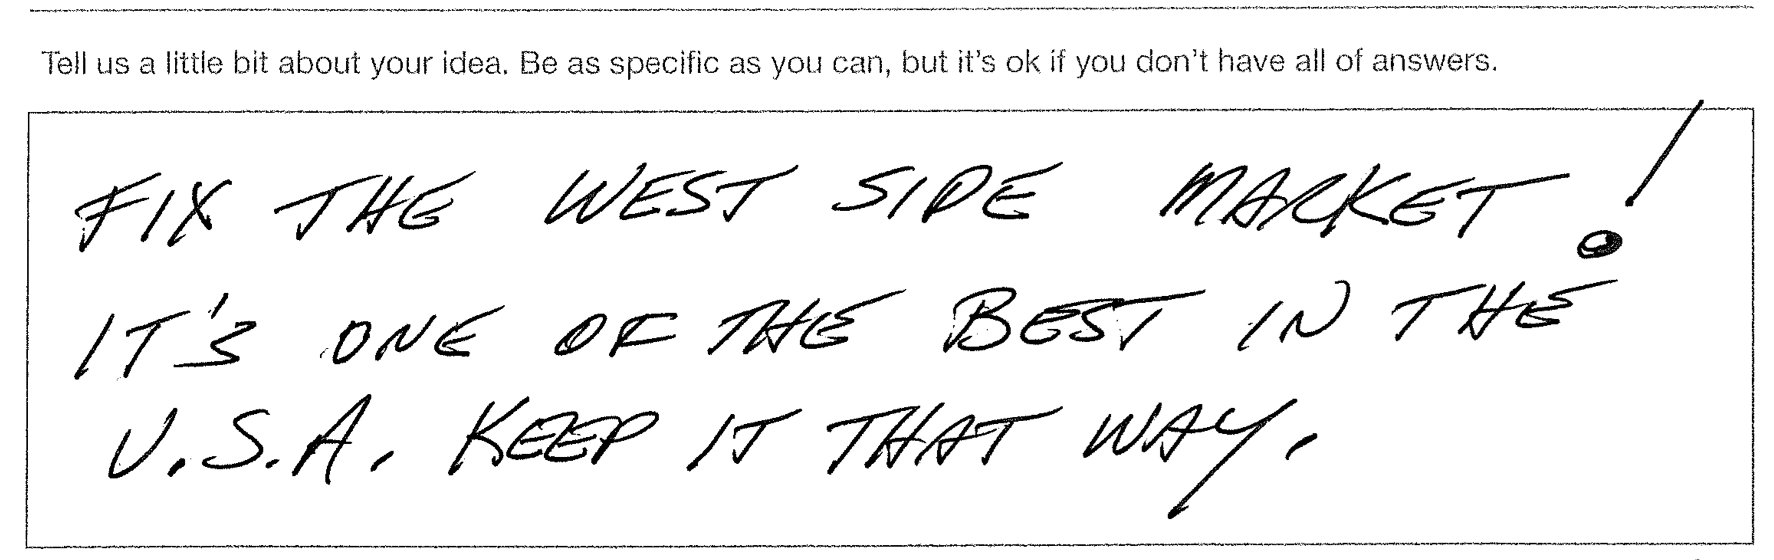 Tell us a little bit about your idea. Be as specific as you can, but it's ok if you don't have all of answers.
FIX THE WEST SIDE MARKET!
IT'S ONE OF THE BEST IN THE
U.S.A. KEEP IT THAT WAY.